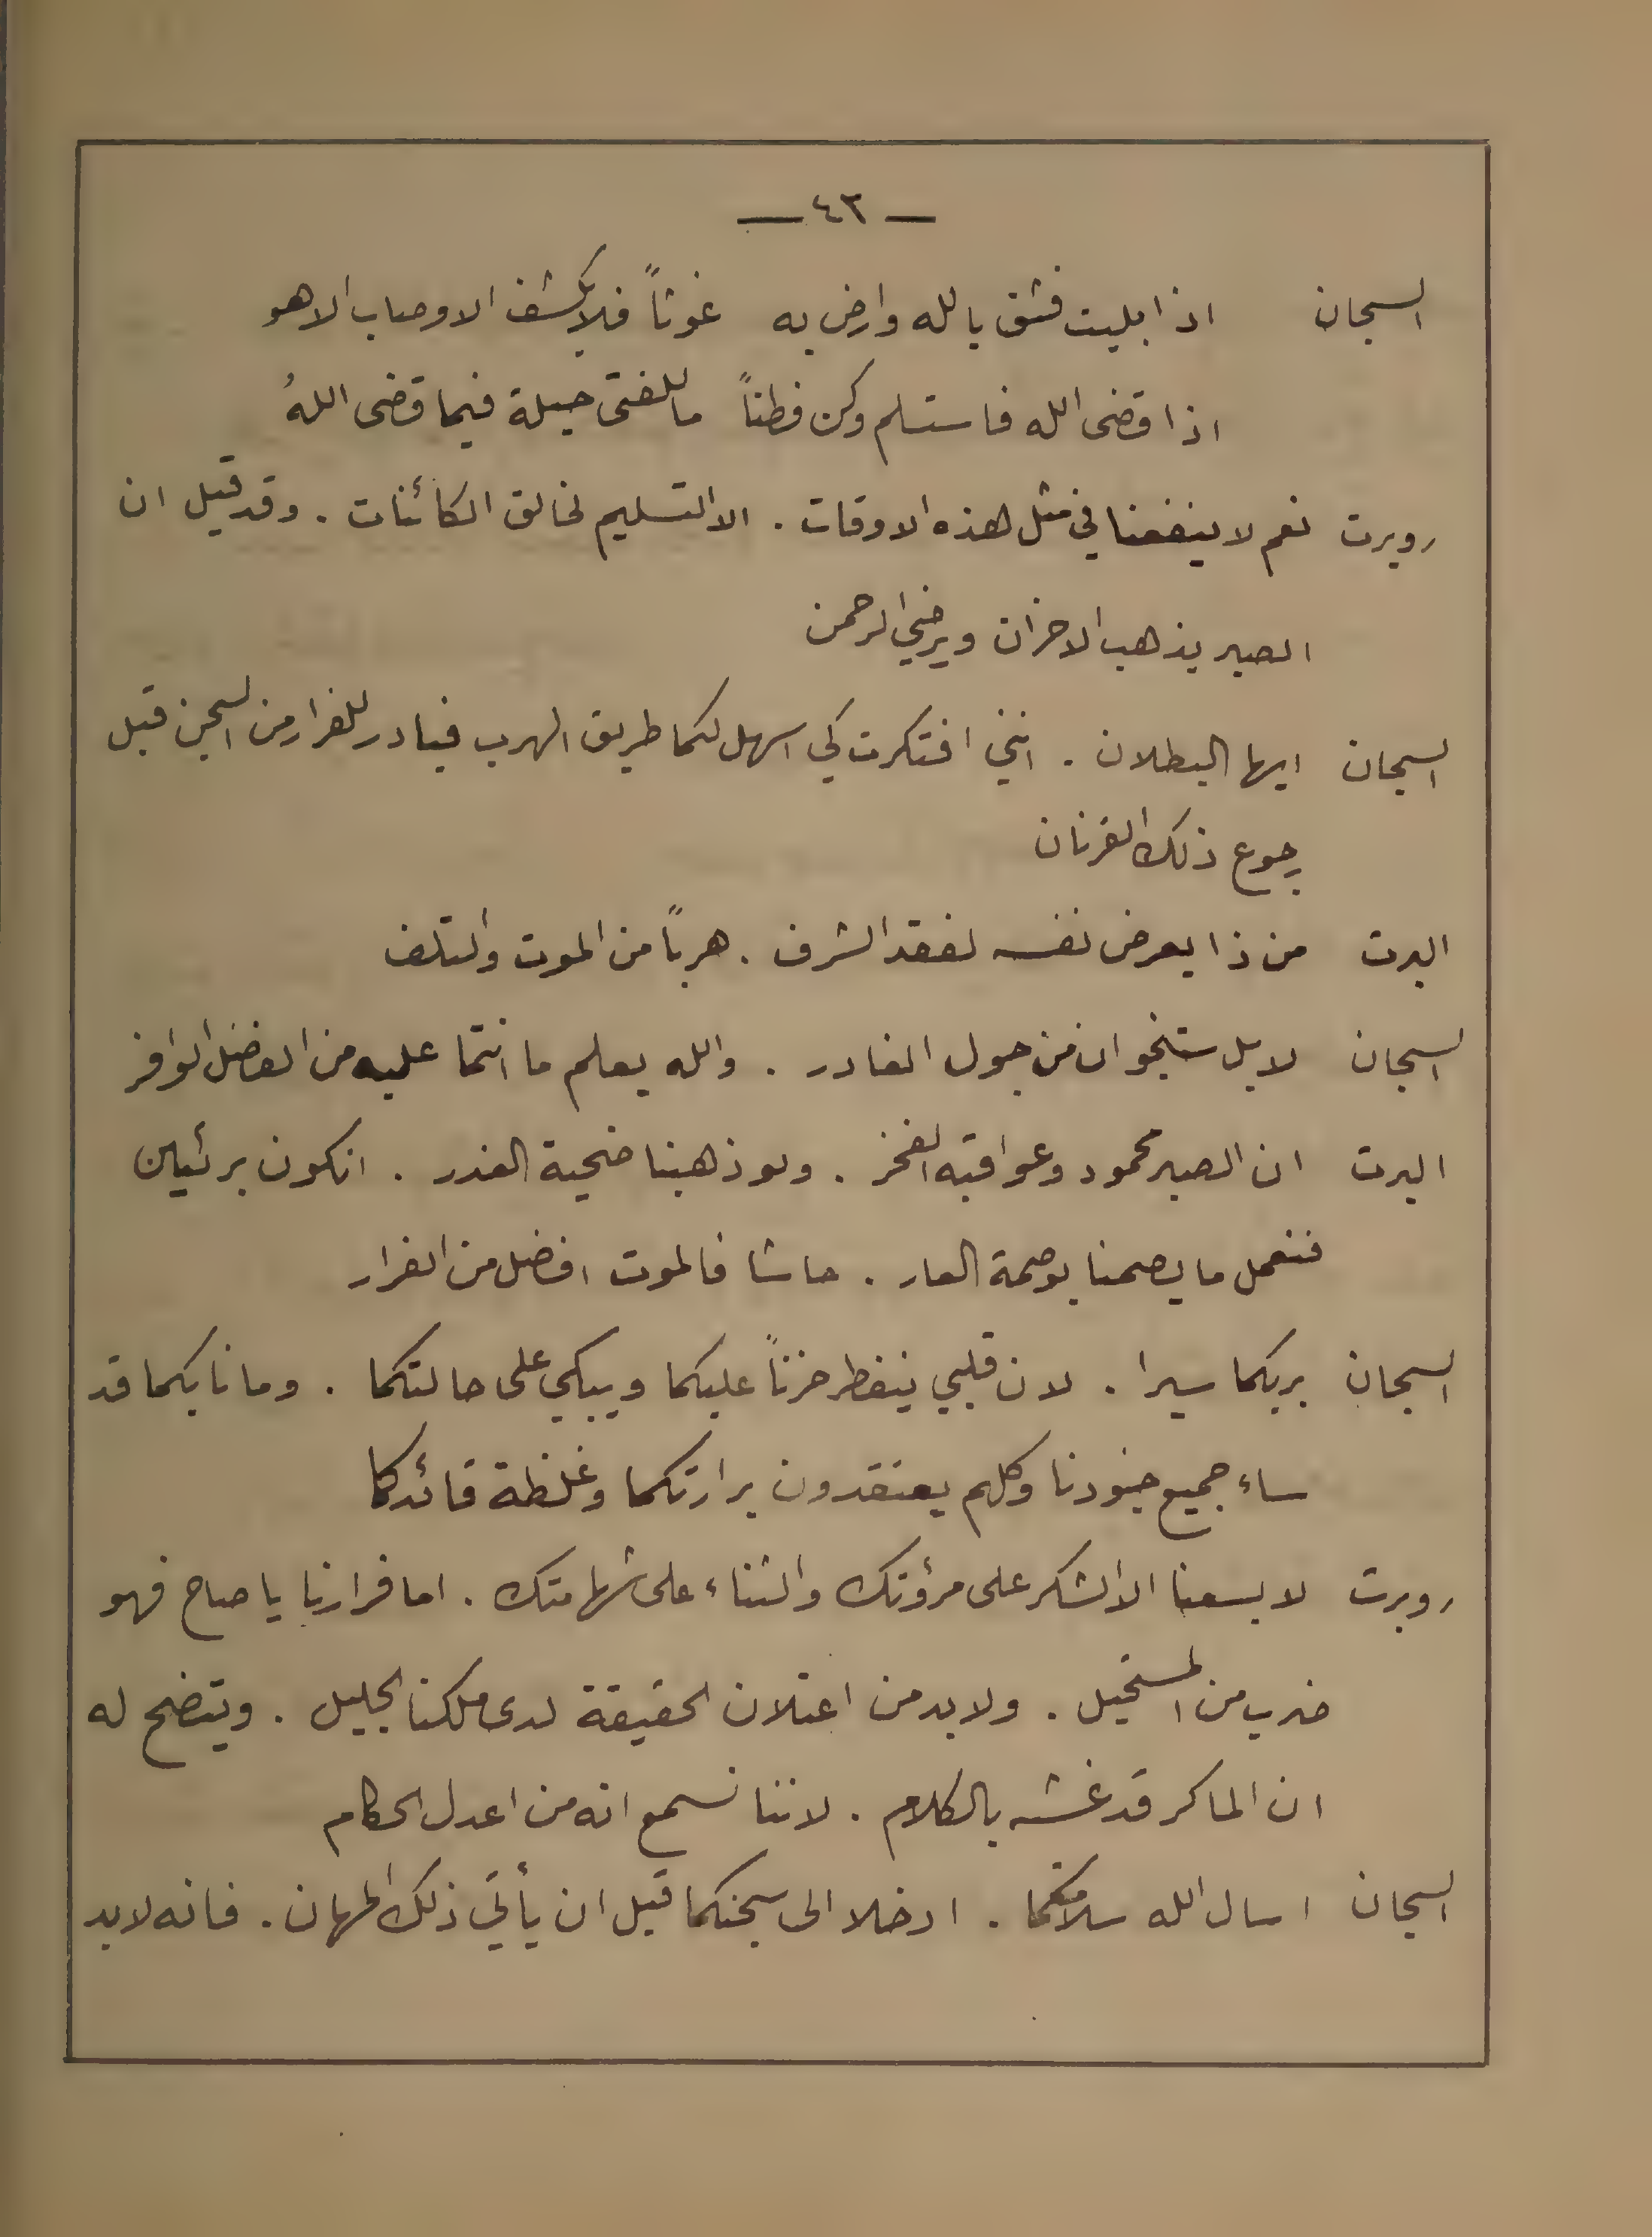 — ٤٣ —
السجان اذا بليت فثق بالله وارض به غوثاً فلا يكشف الاوصاب الا هو
اذا قضى الله فاستسلم وكن فطناً ما للفتى حيلة فيما قضى اللهُ
روبرت نعم لا ينفعنا في مثل هذه الاوقات . الا التسليم لخالق الكائنات . وقد قيل ان
الصبر يذهب الاحزان ويرضي الرحمن
السجان ايها البطلان . انني افتكرت كي اسهل لكما طريق الهرب فبادر للفرار من السجن قبل
رجوع ذلك القرنان
البرت من ذا يعرض نفسه لفقد الشرف . هرباً من الموت والتلف
السجان لا بل ستنجوان من جول الغادر . والله يعلم ما انتما عليه من الفضل الوافر
البرت ان الصبر محمود وعواقبه الفخر . ولو ذهبنا ضحية الغدر . انكون برئيين
فنعمل ما يصمنا بوصمة العار . حاشا فالموت افضل من الفرار
السجان بربكما سيرا . لان قلبي ينفطر حزناً عليكما ويبكي على حالتكما . وما نابكما قد
ساء جميع جنودنا وكلهم يعتقدون برارتكما وغلظة قائدكما
روبرت لا يسعنا الا الشكر على مرؤتك والثناء على شهامتك . اما فرارنا يا صاح فهو
ضرب من المستحيل . ولا بد من اعتلان الحقيقة لدى ملكنا الجليل . ويتضح له
ان الماكر قد غشه بالكلام . لاننا نسمع انه من اعدل الحكام
السجان اسال الله سلامتكما . ادخلا الى سجنكما قبل ان يأتي ذلك المهان . فانه لا بد